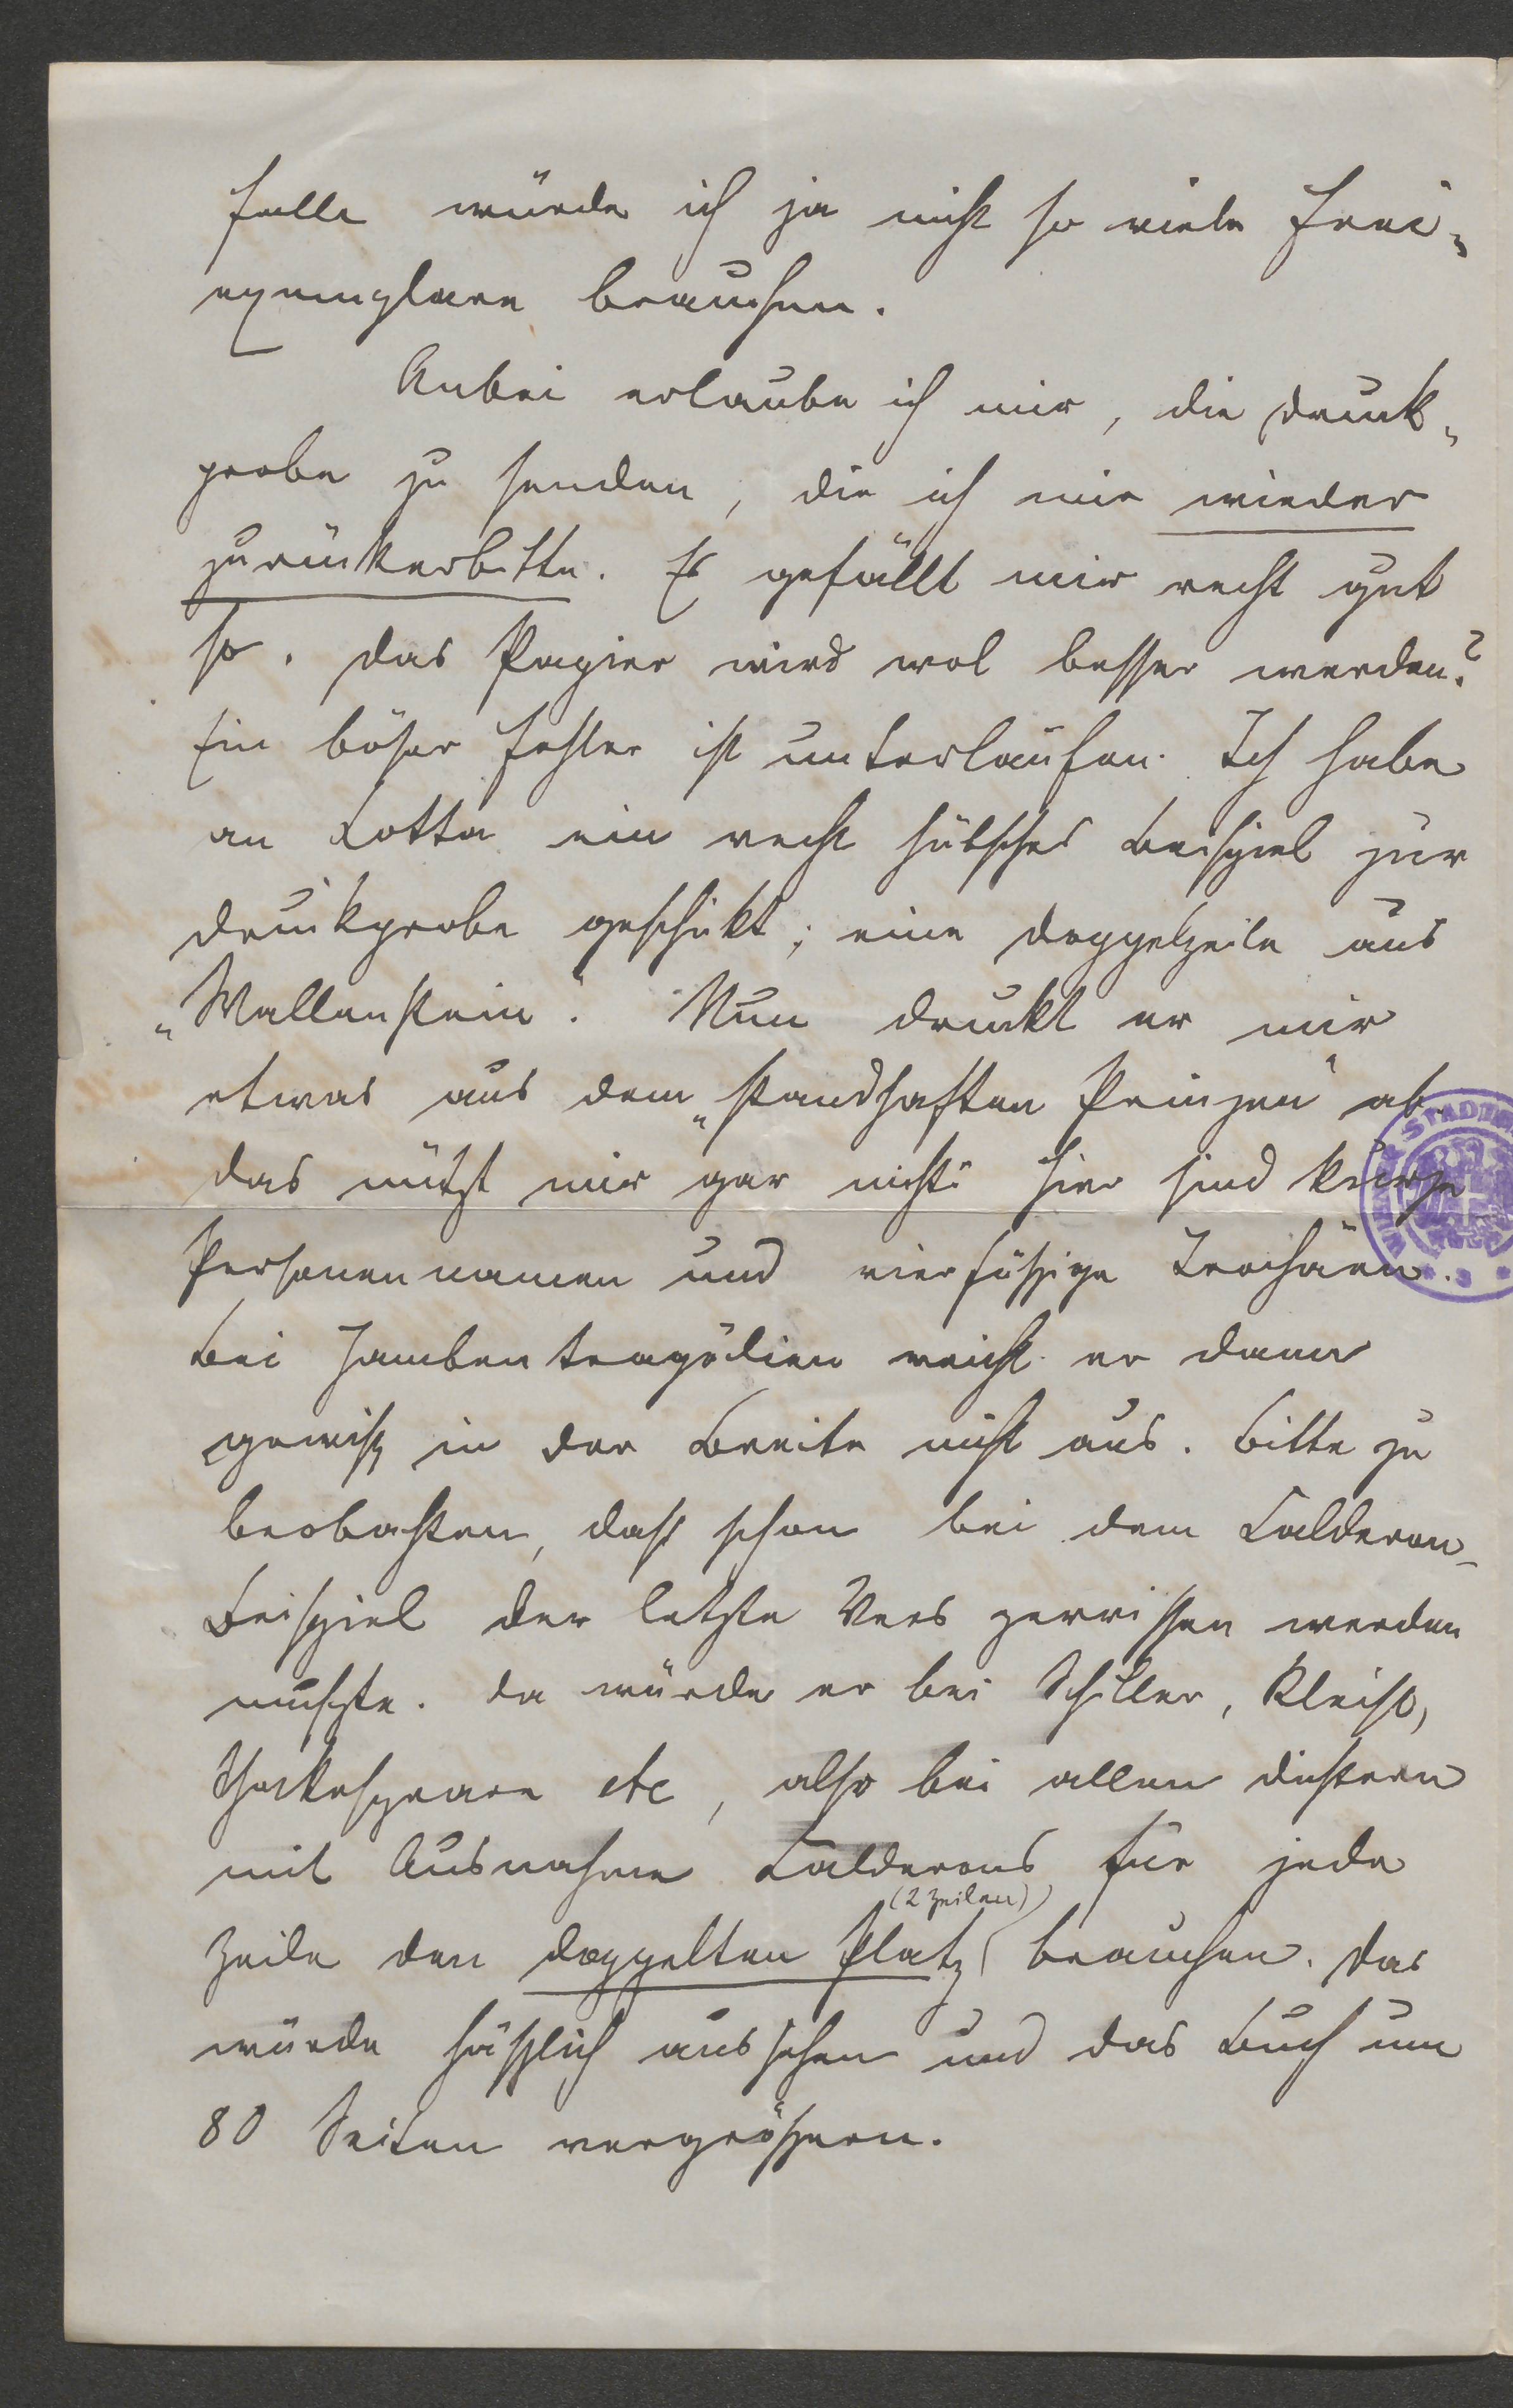 falle würde ich ja nicht so viele Frei„
exemplare brauchen.
Anbei erlaube ich mir, die Druck„
probe zu senden, die ich mir wieder
zurückerbitte. Es gefällt mir recht gut
so. Das Papier wird wol besser werden?
Ein böser Fehler ist unterlaufen. Ich habe
an Cotta ein recht hübsches Beispiel zur
Druckprobe geschickt; eine Doppelzeile aus
„Wallenstein“. Nun druckt er mir
etwas aus dem „standhaften Prinzen“ ab.
Das nützt mir gar nichts. Hier sind kurze
Personennamen und vierfüßige Trochäen.
Bei Jambentragödien reicht er dann
gewiß in der Breite nicht aus. Bitte zu
beobachten, daß schon bei dem Calderon-
Beispiel der letzte Vers zerrissen werden
mußte. Da würde er bei Schiller, Kleist,
Shakespeare etc, also bei allen Dichtern
mit Ausnahme Calderons für jede
(2 Zeilen)
Zeile den doppelten Platz brauchen. Das
würde häßlich aussehen und das Buch um
80 Seiten vergrößern.